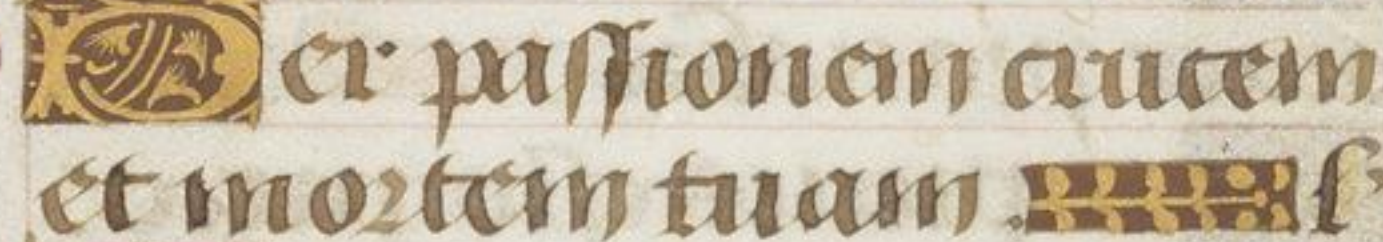 Per passionem crucem
et mortem tuam .